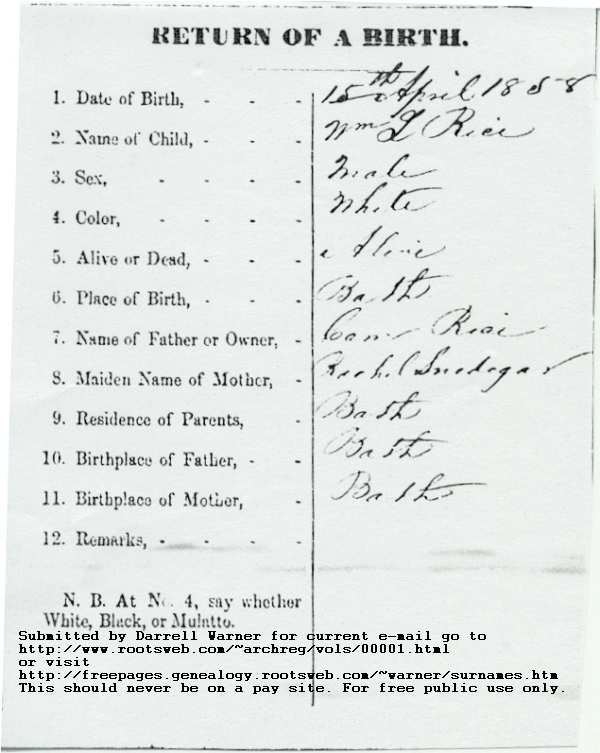 RETURN OF A BIRTH.
1. Date of Birth, - - - 15th April 1858
2. Name of Child, - - - Wm L Rice
3. Sex, - - - - Male
4. Color, - - - - White
5. Alive or Dead, - - - Alive
6. Place of Birth, - - - Bath
7. Name of Father or Owner, - Cam Rice
8. Maiden Name of Mother, - Rachel Snedegar
9. Residence of Parents, - Bath
10. Birthplace of Father, - - Bath
11. Birthplace of Mother, - Bath
12. Remarks, - - - -
N. B. At No. 4, say whether
White, Black, or Mulatto.
Submitted by Darrell Warner for current e-mail go to
http://www.rootsweb.com/~archreg/vols/00001.html
or visit
http://freepages.genealogy.rootsweb.com/~warner/surnames.htm
This should never be on a pay site. For free public use only.